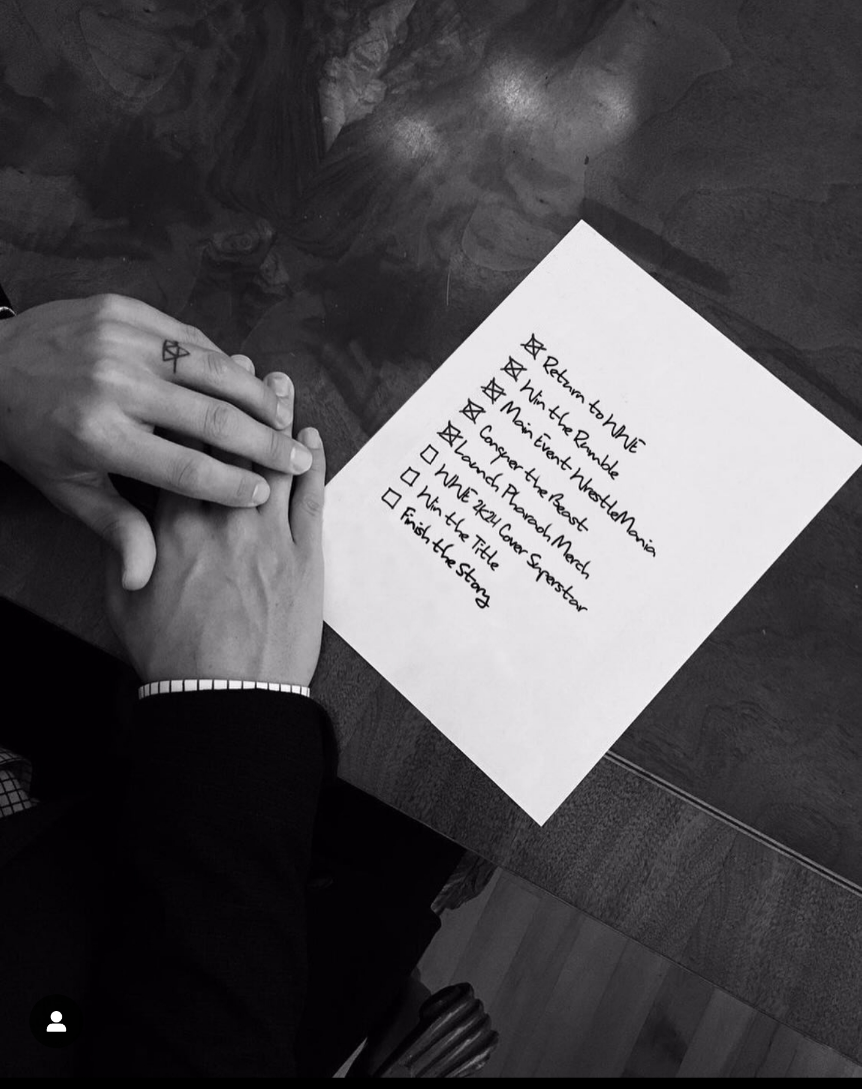 Return to WWE
Win the Rumble
Main Event WrestleMania
Conquer the Beast
Launch Pharaoh Merch
WWE 2K24 Cover Superstar
Win the Title
Finish the Story